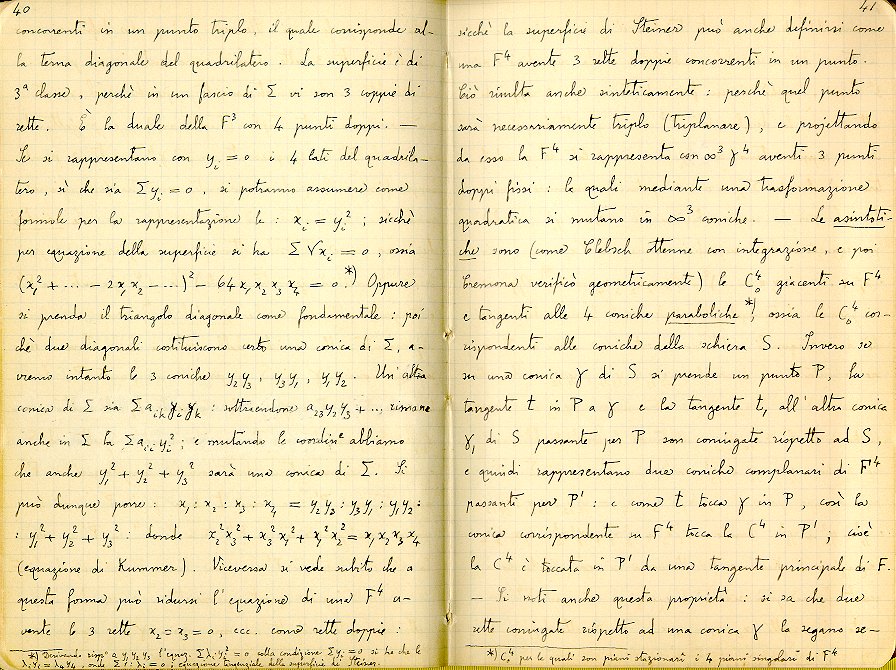 40
concorrenti in un punto triplo, il quale corrisponde al-
la terna diagonale del quadrilatero. La superficie è di
3ª classe, perchè in un fascio di Σ vi son 3 coppie di
rette. È la duale della F³ con 4 punti doppi. —
Se si rappresentano con yᵢ = 0 i 4 lati del quadrila-
tero, sì che sia Σyᵢ = 0, si potranno assumere come
formole per la rappresentazione le: xᵢ = yᵢ²; sicchè
per equazione della superficie si ha Σ√xᵢ = 0, ossia
(x₁² + ⋯ – 2x₁x₂ – ⋯)² – 64x₁x₂x₃x₄ = 0.*) Oppure
si prenda il triangolo diagonale come fondamentale: poi-
chè due diagonali costituiscono certo una conica di Σ, a-
vremo intanto le 3 coniche y₂y₃, y₃y₁, y₁y₂. Un'altra
conica di Σ sia Σaᵢₖyᵢyₖ: sottraendone a₂₃y₂y₃ + ⋯, rimane
anche in Σ la Σaᵢᵢyᵢ²; e mutando le coordinᵉ abbiamo
che anche y₁² + y₂² + y₃² sarà una conica di Σ. Si
può dunque porre: x₁ : x₂ : x₃ : x₄ = y₂y₃ : y₃y₁ : y₁y₂ :
: y₁² + y₂² + y₃² : donde x₂²x₃² + x₃²x₁² + x₁²x₂² = x₁x₂x₃x₄
(equazione di Kummer). Viceversa si vede subito che a
questa forma può ridursi l'equazione di una F⁴ a-
vente le 3 rette x₂ = x₃ = 0, ecc. come rette doppie:
*) Derivando rispº a y₁ y₂ y₃ l'equaz. Σλᵢyᵢ² = 0 colla condizione Σyᵢ = 0 si ha che le
λᵢyᵢ = λ₄y₄, onde Σ1/λᵢ = 0; equazione tangenziale della superficie di Steiner.
41
sicchè la superficie di Steiner può anche definirsi come
una F⁴ avente 3 rette doppie concorrenti in un punto.
Ciò risulta anche sinteticamente: perchè quel punto
sarà necessariamente triplo (triplanare), e projettando
da esso la F⁴ si rappresenta con ∞³ γ⁴ aventi 3 punti
doppi fissi: le quali mediante una trasformazione
quadratica si mutano in ∞³ coniche. — Le asintoti-
che sono (come Clebsch ottenne con integrazione, e poi
Cremona verificò geometricamente) le C₀⁴ giacenti su F⁴
e tangenti alle 4 coniche paraboliche*), ossia le C₀⁴ cor-
rispondenti alle coniche della schiera S. Invero se
su una conica γ di S si prende un punto P, la
tangente t in P a γ e la tangente t₁ all'altra conica
γ₁ di S passante per P son coniugate rispetto ad S,
e quindi rappresentano due coniche complanari di F⁴
passanti per P': e come t tocca γ in P, così la
conica corrispondente su F⁴ tocca la C⁴ in P'; cioè
la C⁴ è toccata in P' da una tangente principale di F.
— Si noti anche questa proprietà: si sa che due
rette coniugate rispetto ad una conica γ la segano se-
*) C₀⁴ per le quali son piani stazionarî i 4 piani singolari di F⁴